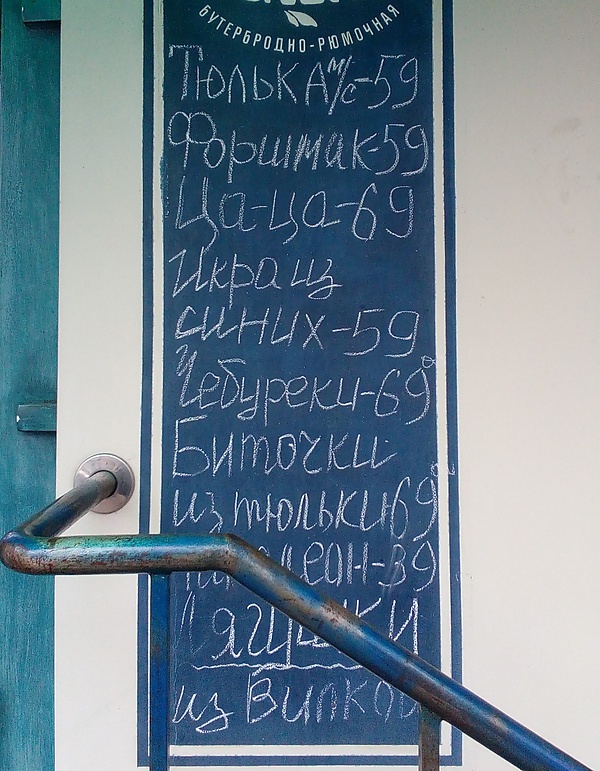 БУТЕРБРОДНО-РЮМОЧНАЯ
Тюлька м/с-59
Форшмак-59
Ца-ца-69
Икра из
синих-59
Чебуреки-69
Биточки
из тюльки-69
из Вилково